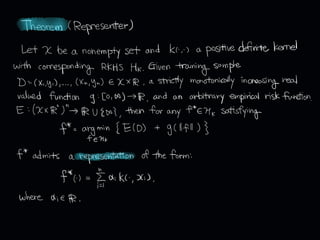 Theorem (Representer)
Let X be a nonempty set and k(·,·) a positive definite kernel
with corresponding RKHS Hₖ. Given training sample
D=(x₁,y₁),..., (xₙ,yₙ) ∈ X×ℝ, a strictly monotonically increasing real
valued function g:[0,∞)→ℝ, and an arbitrary empirical risk function
E:(X×ℝ²)ⁿ→ℝ∪{∞}, then for any f*∈Hₖ satisfying
f* = arg min {E(D) + g(‖f‖)}
f∈Hₖ
f* admits a representation of the form:
f*(·) = Σ αᵢ k(·, xᵢ),
n
i=1
where αᵢ∈ℝ.